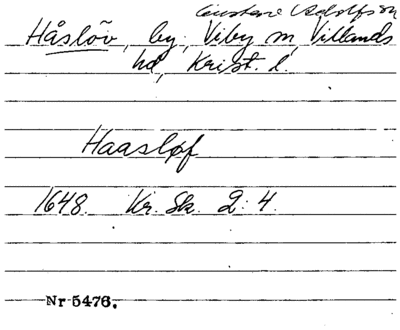 Gustav Adolfson
Håslöv, by, Viby sn, Villands
hd, Krist. l.
Haasløf
1648. Kr. Sk. 2: 4.
Nr 5476.